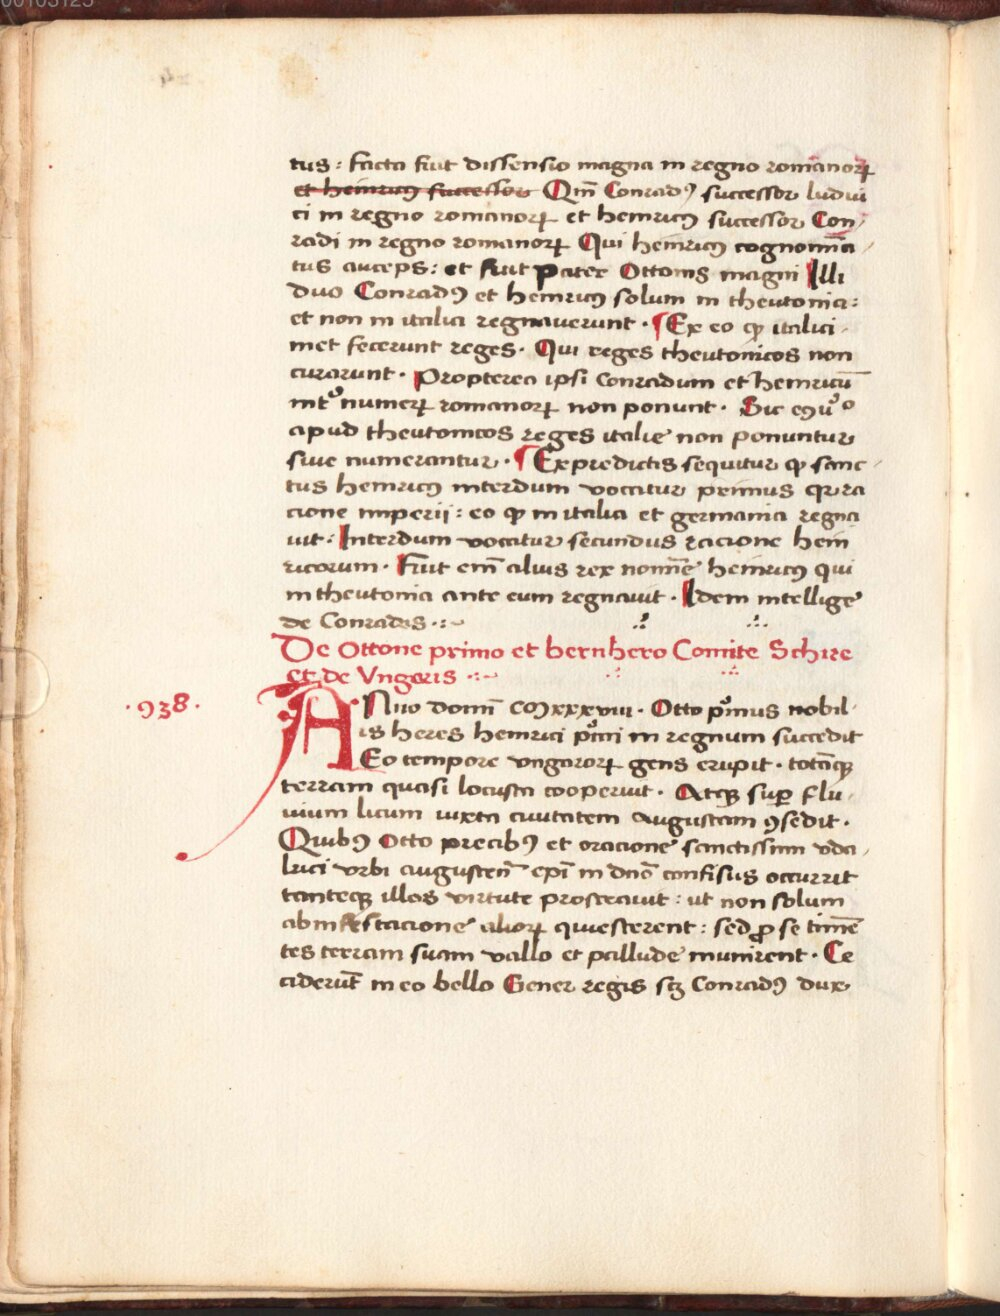 tus : facta fuit dissensio magna in regno romanorꝝ
et heinricꝰ successor Qm̄ Conradꝰ successor ludui
ci in regno romanorꝝ et heinricꝰ successor Con/
radi in regno romanorꝝ Qui heinricꝰ cognomīa/
tus auceps: et fuit pater Ottonis magni Illi
duo Conradꝰ et heinricꝰ solum in theutonia:
et non in italia regnauerunt · ¶ Ex eo ꝙ italici·
met fecerunt reges · Qui reges theutonicos non
curarunt · Propterea ipsi Conradum et heinricū
int° numerꝝ romanorꝝ non ponunt · Sic
apud theutonicos reges italie non ponuntur
siue numerantur · ¶ Ex predictis sequitur ꝙ sanc/
tus heinricꝰ interdum vocatur primus ra
cione imperii : eo ꝙ in italia et germania regna
uit · Interdum vocatur secundus racione hein
ricorum · Fuit em̄ alius rex nomīe heinricꝰ qui
in theutonia ante eum regnauit · Idem intellige
de Conradis ·:~
De Ottone primo et bernhero Comite Schire
et de Vngeris ·:~
·938·
ANno domī CMxxxviii · Otto pͥmus nobil·
is heres heinrici pͥmi in regnum succedit
Eo tempore vngarorꝝ gens erupit · totāqꝫ
terram quasi locusta cooperuit · Atqꝫ sup̄ flu/
uium licum iuxta ciuitatem augustam ꝯsedit ·
Quibꝰ Otto precibꝰ et oracione sanctissimi vda/
lrici vrbi augusteñ epī in dn̄o confisus occurrit
tanteqꝫ illos virtute prostrauit : ut non solum
ab infestacione aliorꝝ quiescerent : sed ꝓ se timē
tes terram suam vallo et pallude munirent · Ce
ciderūt in eo bello Gener regis scꝫ Conradꝰ dux